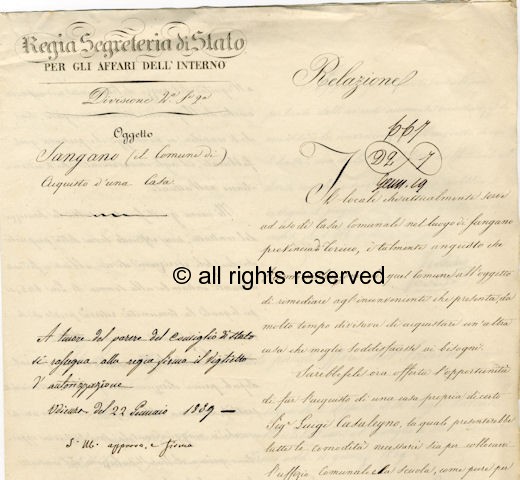 Regia Segreteria di Stato
PER GLI AFFARI DELL'INTERNO
Divisione 2ª
Oggetto
Sangano (il Comune di)
Acquisto d'una Casa
A tenore del parere del Consiglio di Stato
si rassegna alla regia firma il Viglietto
d'autorizzazione
Udienza del 22 Gennaio 1839
S. M. approva, e firma
Relazione
667
D2 7
Genn. 19
Il locale che attualmente serve
ad uso di Casa Comunale nel luogo di Sangano
provincia di Torino, è talmente angusto che
quel Comune all'oggetto
di rimediare agl'inconvenienti che presenta da
molto tempo divisò di acquistare un'altra
casa che meglio soddisfacesse ai bisogni.
Sarebbesi ora offerta l'opportunità
di far l'acquisto di una casa propria di certo
Sigr Luigi Casalegno, la quale presenterebbe
tutte le comodità necessarie sia per collocarvi
l'uffizio Comunale e la scuola, come pure per
© all rights reserved